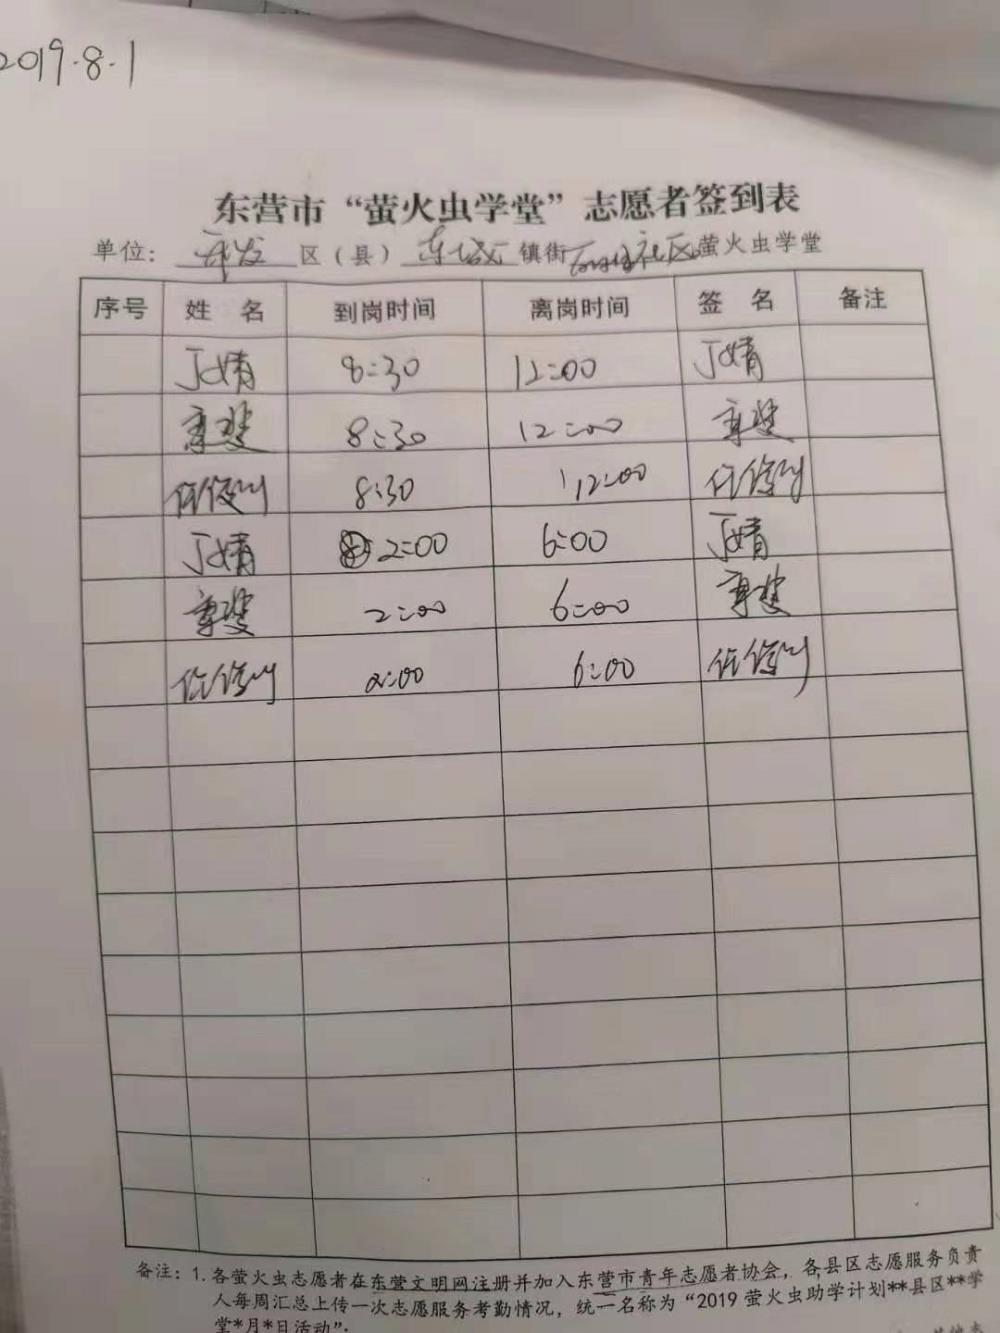 2019.8.1
东营市“萤火虫学堂”志愿者签到表
单位： 开发 区（县） 东城 镇街 社区萤火虫学堂
序号 姓 名 到岗时间 离岗时间 签 名 备注
丁婧 8:30 12:00 丁婧
8:30 12:00
8:30 12:00
丁婧 2:00 6:00 丁婧
2:00 6:00
2:00 6:00
备注：1.各萤火虫志愿者在东营文明网注册并加入东营市青年志愿者协会，各县区志愿服务负责
人每周汇总上传一次志愿服务考勤情况，统一名称为“2019萤火虫助学计划**县区**学
堂*月*日活动”；